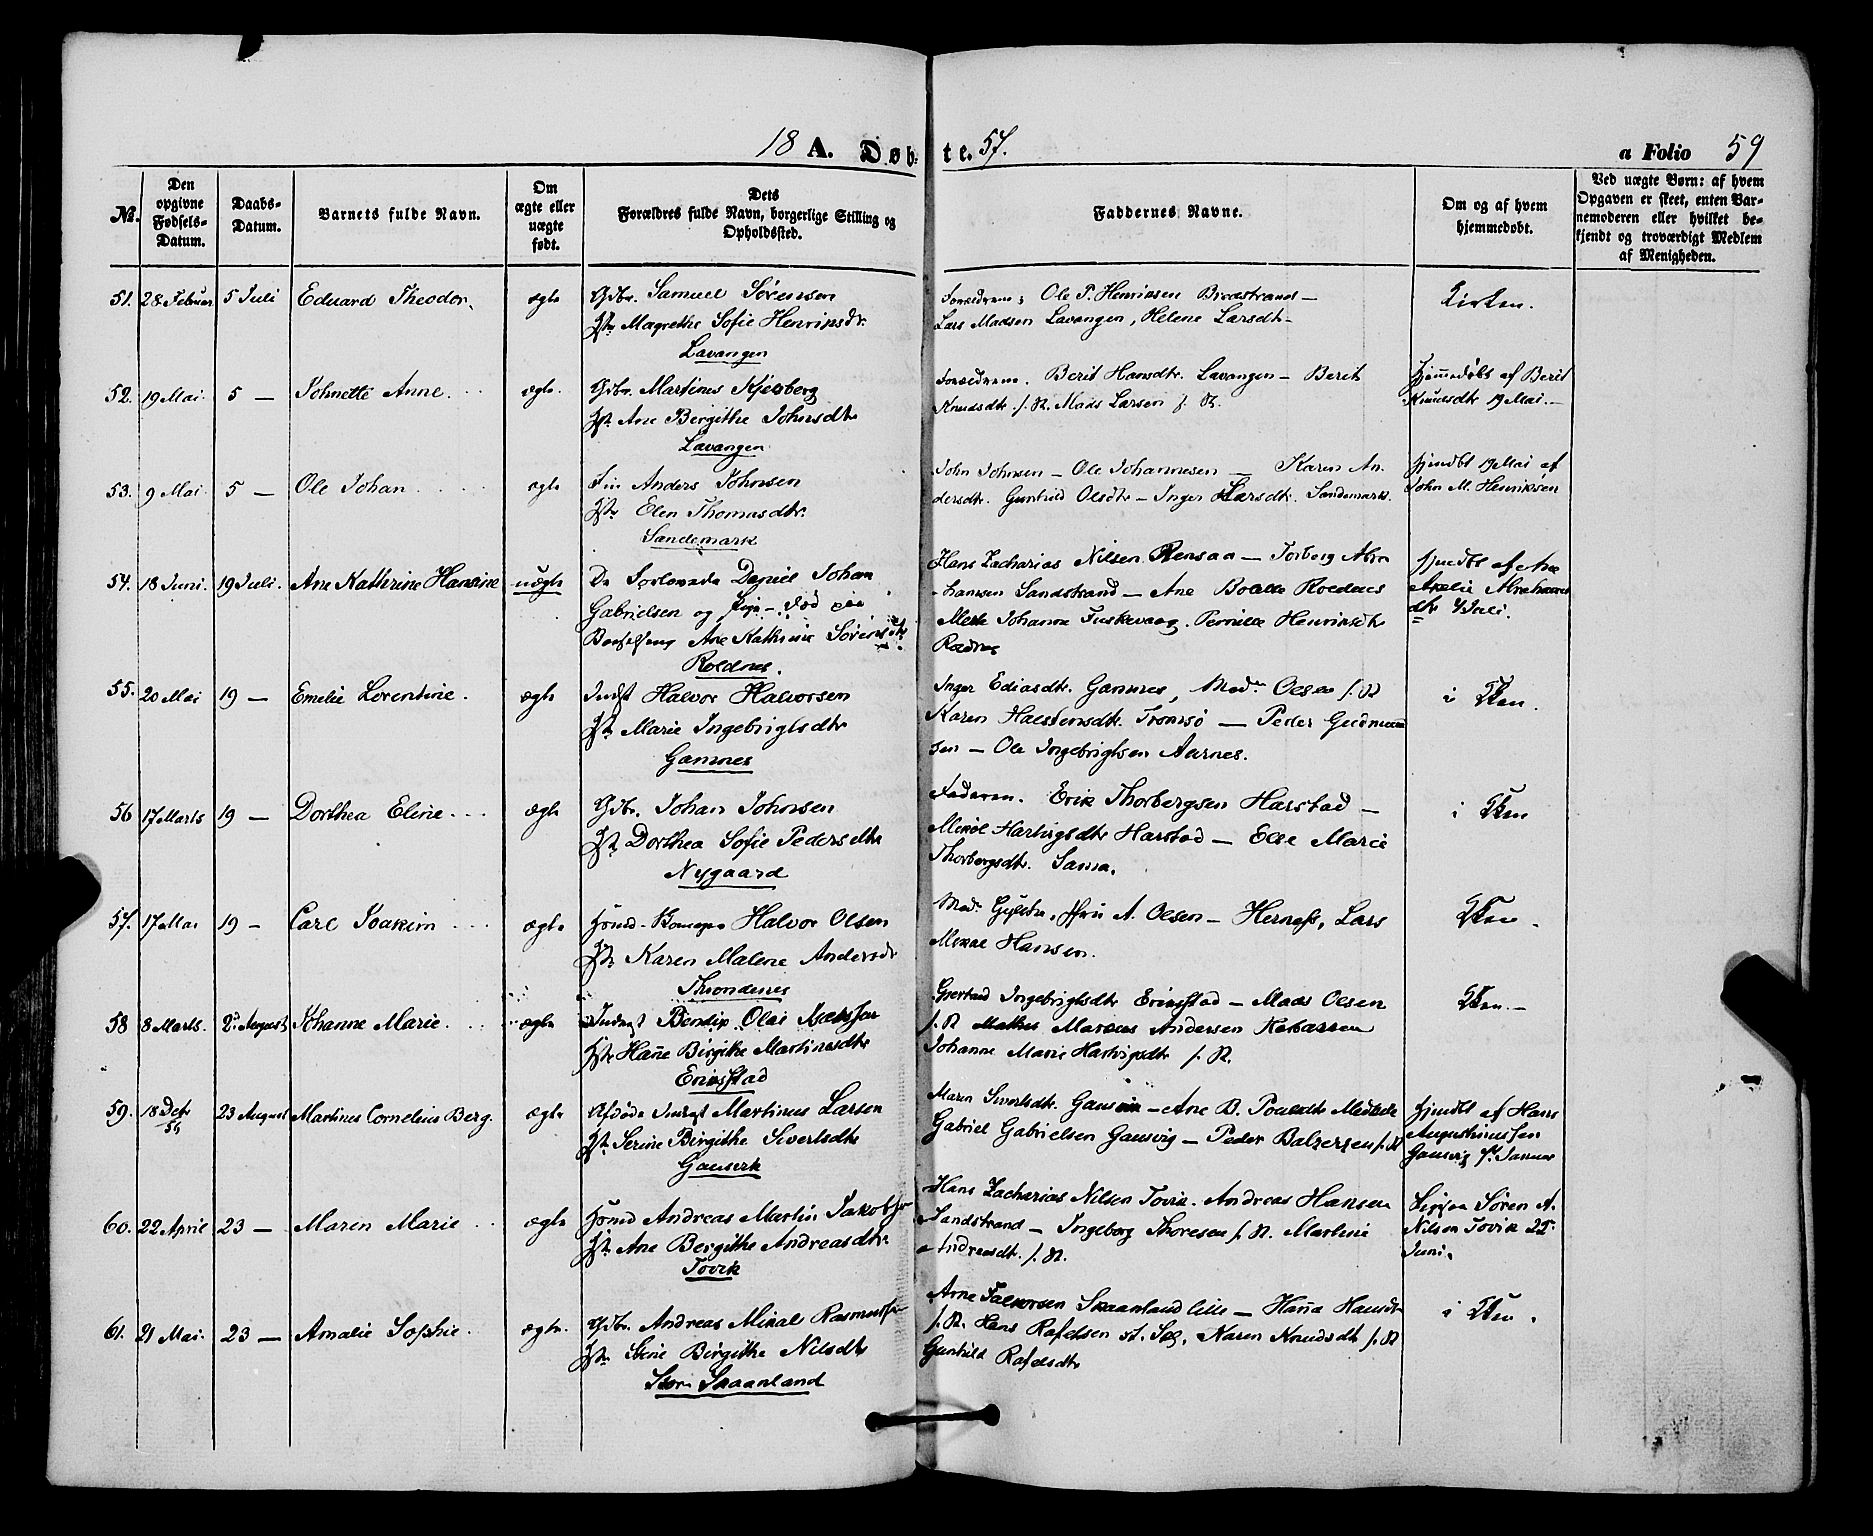 18 A. Døbte. 57.
a Folio 59
No. Den opgivne Fødsels-Datum. Daabs-Datum. Barnets fulde Navn. Om ægte eller uægte født. Dets Forældres fulde Navn, borgerlige Stilling og Opholdssted. Faddernes Navne. Om og af hvem hjemmedøbt. Ved uægte Børn: af hvem Opgaven er skeet, enten Barnemoderen eller hvilket bekjendt og troværdigt Medlem af Menigheden.
51. 28 Februar 5 Juli Eduard Theodor. ægte Gdbr. Samuel Sørensen
Hst. Magrethe Sofie Henriksdr.
Lavangen
Forældrene; Ole P. Henriksen
Lars Madsen Lavangen, Helene Larsdt.
Kirken.
52. 19 Mai. 5 — Johnette Anne. ægte. Gdbr. Martinus Kjelberg
Hst. Ane Bergithe Johnsdtr
Lavangen
Forældrene. Berit Hansdtr. Lavangen — Berit
Knudsdtr f. St. Mads Larsen f. St.
Hjemmedøbt af Berit
Knudsdtr 19 Mai. —
53. 9 Mai 5 — Ole Johan ægte Fin Anders Johnsen
Hst. Elen Thomasdtr.
Sandemark
John Johnsen — Ole Johannesen — Karen An-
dersdtr. Gunhild Olsdtr — Inger Larsdtr. Sandemark.
Hjemdbt 19 Mai af
John M. Henriksen
54. 18 Juni. 19 Juli. Ane Kathrine Hansine uægte De Forlovede Daniel Johan
Gabrielsen og Pige
Ane Kathrine Sørensdtr.
Roldnes.
Hans Zacharias Nilsen Rensaa — Torberg Abra-
hamsen Sandstrand — Ane Roldnes
Johanna Fuskevaag. Pernille Henriksdtr
Roldnes
Hjemdbt af Ane
Abrahams
dtr Juli.
55. 20 Mai 19 — Emelie Lorentine. ægte Indst Halvor Halvorsen
Hst. Marie Ingebrigtsdtr
Gamnes
Inger Ediasdtr. Gamnes, Mad. Olsen f. St
Karen Halstensdtr. Tromsø — Peder Gudmund
sen — Ole Ingebrigtsen Aarnes.
i Kken.
56 17 Marts 19 — Dorthea Eline ægte Gdbr. Johan Johnsen
Hst. Dorthea Sofie Pedersdtr
Nygaard
Faderen. Erik Thorbergsen Harstad —
Mikol Hartvigsdtr Harstad — Else Marie
Thorbergsdtr. Sama.
i Kken
57. 17 Mai 19 — Carl Joakim ægte Halvor Olsen
Hst. Karen Malene Andersdr
Throndenes
Mad. Fru A. Olsen — Lars
Mikal Hansen.
Kken.
58 8 Marts. 2. August Johanne Marie. ægte Indrst Bendix Olai Isaksen
Hst. Hanne Birgithe Martinusdtr
Erikstad
Gjertrud Ingebrigtsdtr Erikstad — Mads Olsen
f. St Marcus Andersen
Johanne Marie Hartvigsdtr f. St.
Kken. —
59. 18 Debr 56 23 August Martinus Cornelius Berg. ægte Afdøde Indrst Martinus Larsen
Hst. Serine Birgithe Sivertsdtr
Gausvik
Maren Sivertsdtr. Gausvik — Ane B. Poulsdtr
Gabriel Gabrielsen Gausvig — Peder Balzersen f. St
Hjemdbt af Hans
Augustinussen
Gausvig Januar
60. 22 April 23 — Maren Marie ægte Andreas Martin Jakobsen
Hst. Ane Bergithe Andreasdtr.
Tovik
Hans Zacharias Nilsen Tovik. Andreas Hansen
Sandstrand — Ingeborg Thoresen f. St. Martine
Andreasdt. f. St.
Søren A.
Nilsen Tovik 25
Juni.
61. 21 Mai. 23 — Amalie Sophie. ægte. Gdbr. Andreas Mikal Rasmussen
Hst. Birgithe Nilsdtr
Stor Skaanland
Arne Skaanland lille — Hanna Hansdtr
f. St. Hans Rafelsen st. Karen Knudsdt f. St
Gunhild Rafelsdtr
i Kken.